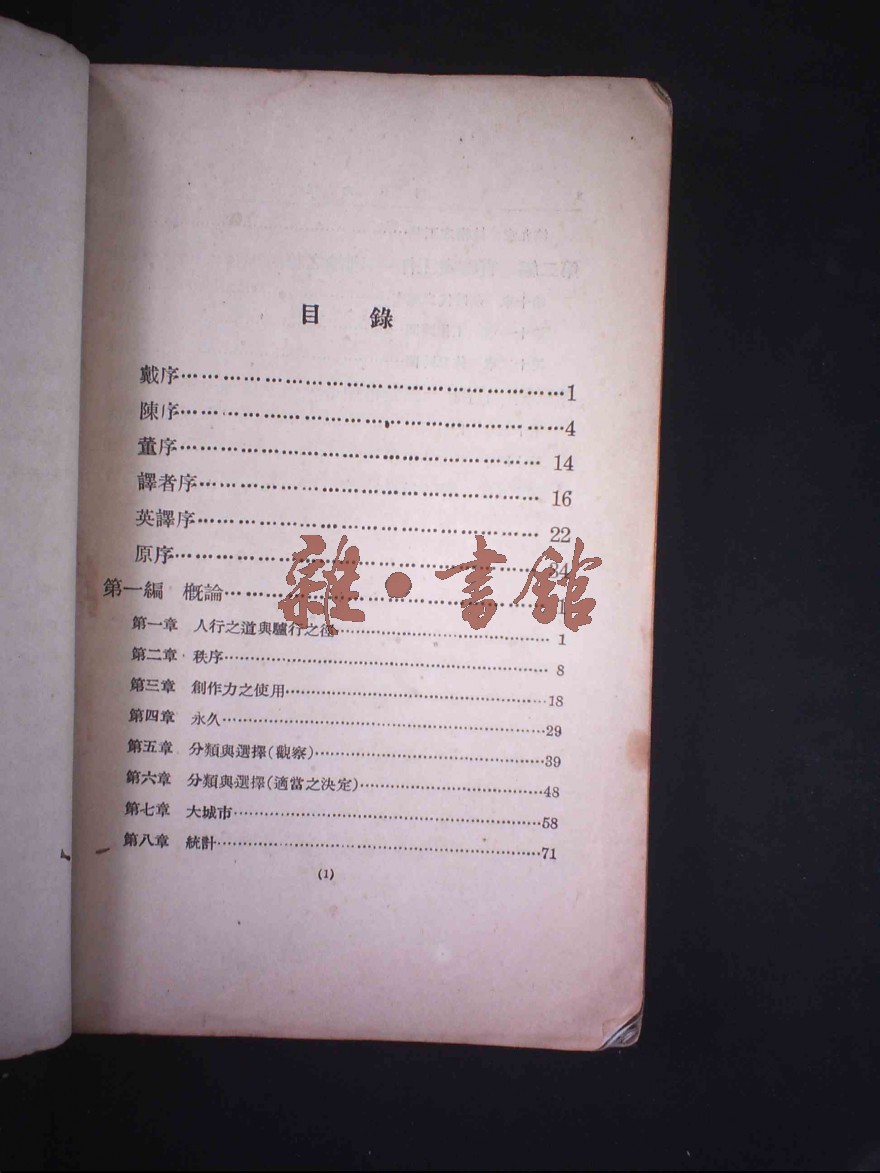 目 錄
戴序…………………………………………1
陳序…………………………………………4
董序…………………………………………14
譯者序………………………………………16
英譯序………………………………………22
原序…………………………………………24
第一編 概論…………………………………1
第一章 人行之道與驢行之徑………………1
第二章 秩序…………………………………8
第三章 創作力之使用………………………18
第四章 永久…………………………………29
第五章 分類與選擇(觀察)…………………39
第六章 分類與選擇(適當之決定)…………48
第七章 大城市………………………………58
第八章 統計…………………………………71
(1)
雜·書館